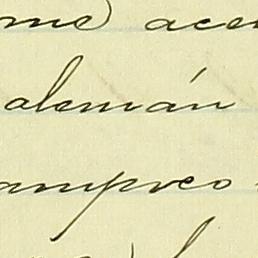 me ace
alemán
ampreo